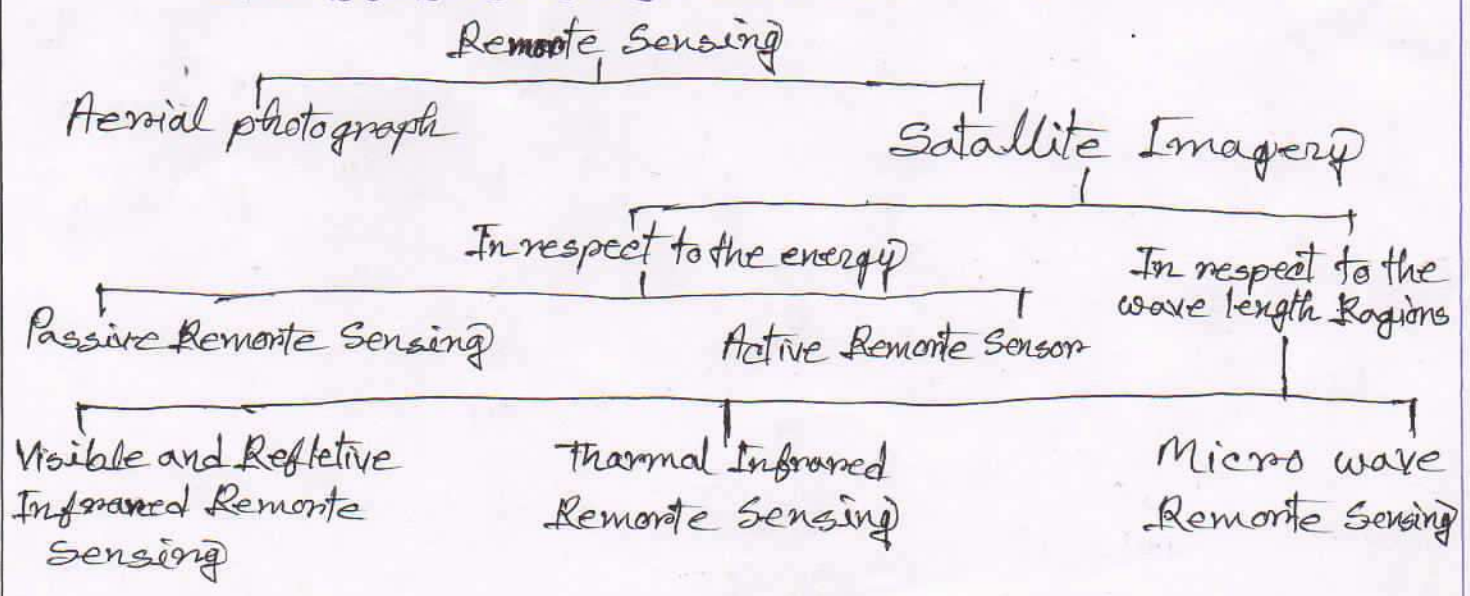 Remote Sensing
Aerial photograph
Satallite Imagery
In respect to the energy
In respect to the
wave length Ragions
Passive Remorte Sensing
Active Remorte Sensor
Visible and Refletive
Infrared Remorte
Sensing
Tharmal Infrared
Remorte Sensing
Micro wave
Remorte Sensing